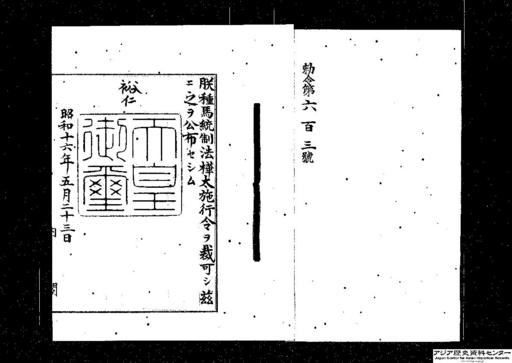 勅令第六百三號
朕種馬統制法樺太施行令ヲ裁可シ茲
ニ之ヲ公布セシム
裕仁
天皇
御璽
昭和十六年五月二十三日
内閣
アジア歴史資料センター
Japan Center for Asian Historical Records